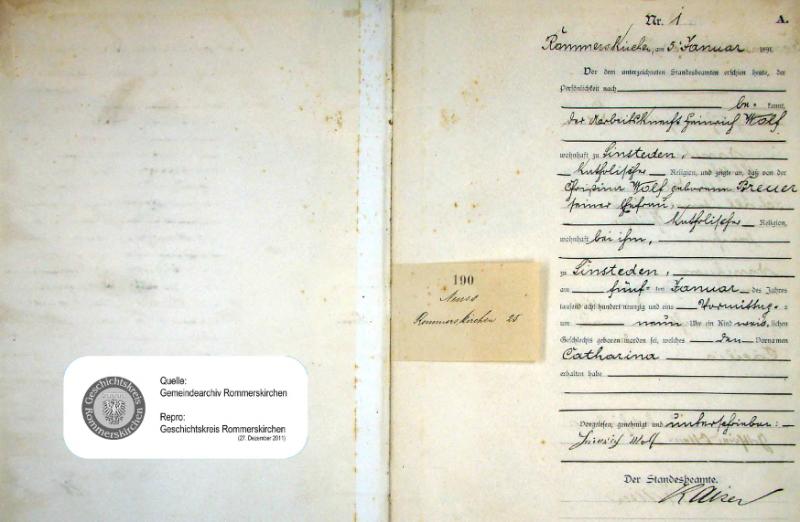 Nr. 1
A.
Rommerskirchen, am 5. Januar 1891
Vor dem unterzeichneten Standesbeamten erschien heute, der
Persönlichkeit nach
be- kannt,
der Arbeitsknecht Heinrich Wolf
wohnhaft zu Sinsteden,
katholischer Religion, und zeigte an, daß von der
Christina Wolf geborenen Breuer
seiner Ehefrau,
katholischer Religion,
wohnhaft bei ihm,
zu Sinsteden,
am fünf- ten Januar des Jahres
tausend acht hundert neunzig und eins Vormittag- s
um neun Uhr ein Kind weib- lichen
Geschlechts geboren worden sei, welches den Vornamen
Catharina
erhalten habe
Vorgelesen, genehmigt und unterschrieben:
Heinrich Wolf
Der Standesbeamte.
Kaiser
190
Neuss
Rommerskirchen 25
Geschichtskreis
Rommerskirchen
Quelle:
Gemeindearchiv Rommerskirchen
Repro:
Geschichtskreis Rommerskirchen
(27. Dezember 2011)